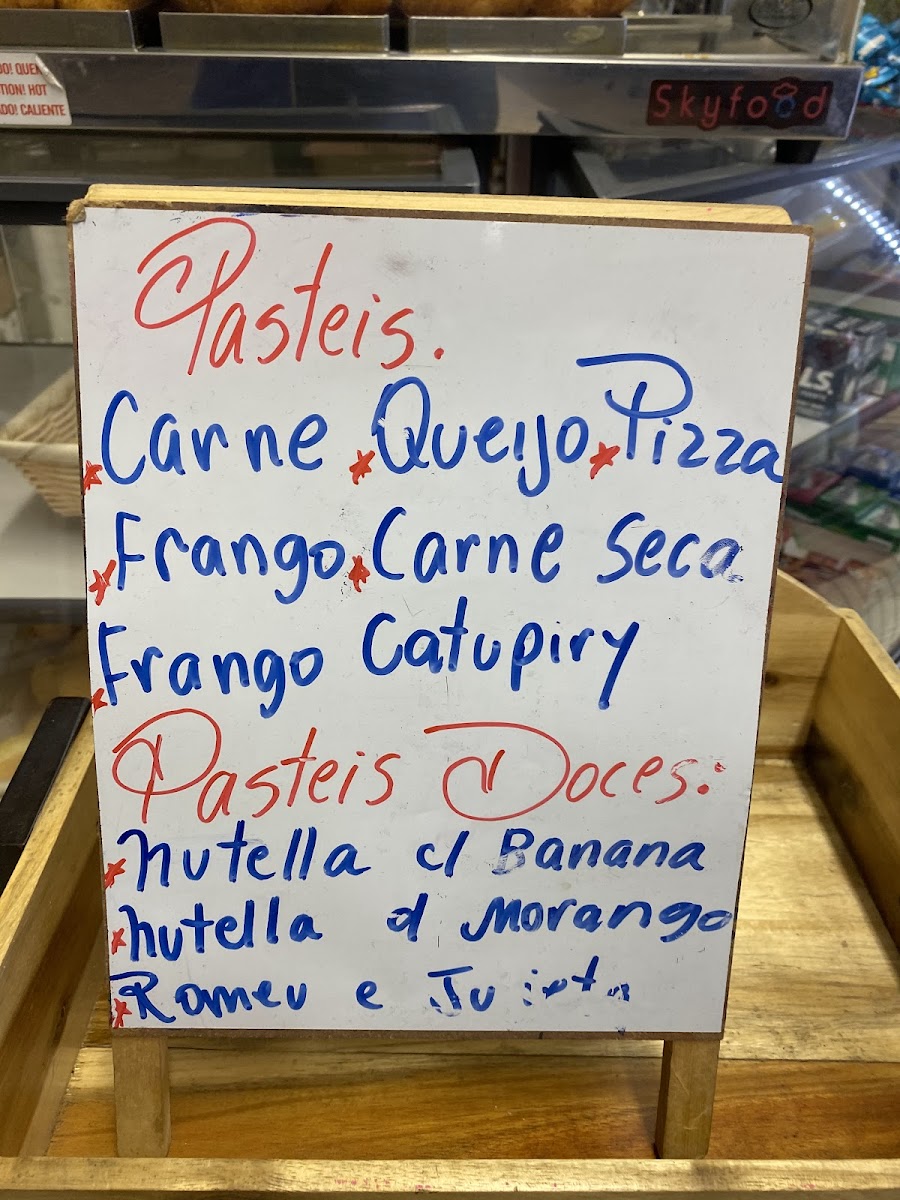 Skyfood
TION! HOT
ADO! CALIENTE
Pasteis.
*Carne *Queijo *Pizza
*Frango *Carne Seca
*Frango Catupiry
Pasteis Doces:
*Nutella c/ Banana
*Nutella c/ Morango
*Romeu e